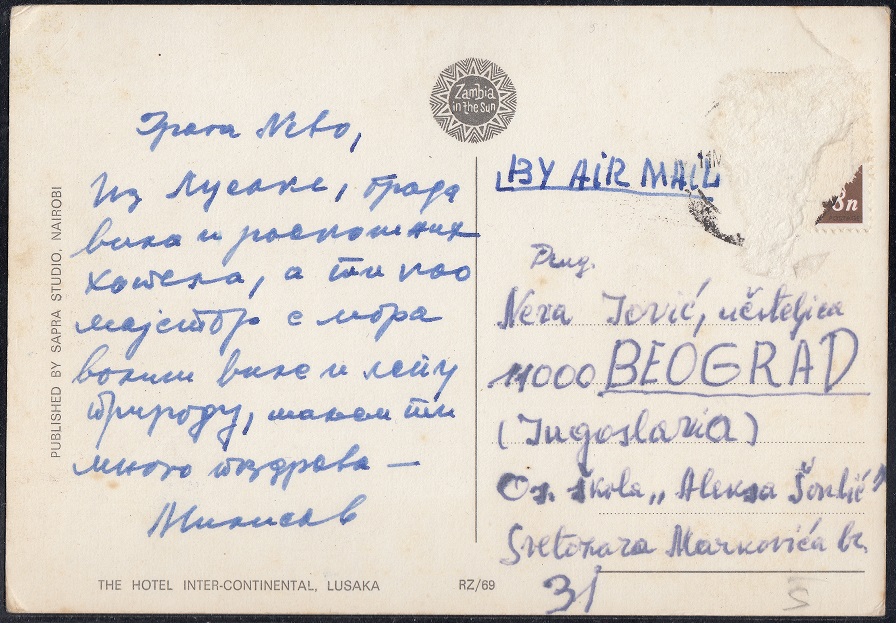 Zambia
in the Sun
Драга Нево,
Из Лусаке, града
вила и раскошних
хотела, а ти као
мајстор с мора
волиш виле и лепу
природу, шаљем ти
много поздрава –
BY AIR MAIL
3n
Drug.
Neva Jović, učiteljica
11000 BEOGRAD
(Jugoslavia)
Os. škola „Aleksa Šantić"
Svetozara Markovića br.
31
PUBLISHED BY SAPRA STUDIO, NAIROBI
THE HOTEL INTER-CONTINENTAL, LUSAKA
RZ/69